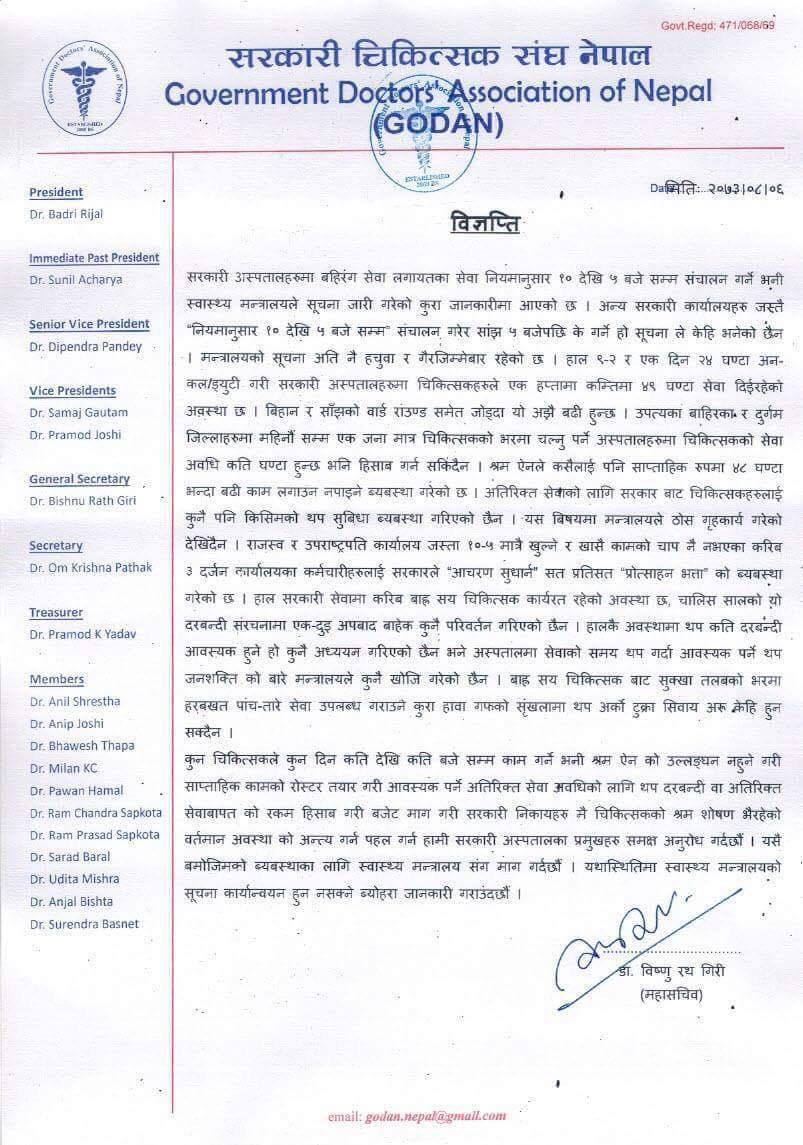 Govt.Regd: 471/068/69
सरकारी चिकित्सक संघ नेपाल
Government Doctors' Association of Nepal
(GODAN)
Government Doctors' Association of Nepal
ESTABLISHED
मितिः २०७३।०८।०६
President
Dr. Badri Rijal
Immediate Past President
Dr. Sunil Acharya
Senior Vice President
Dr. Dipendra Pandey
Vice Presidents
Dr. Samaj Gautam
Dr. Pramod Joshi
General Secretary
Dr. Bishnu Rath Giri
Secretary
Dr. Om Krishna Pathak
Treasurer
Dr. Pramod K Yadav
Members
Dr. Anil Shrestha
Dr. Anip Joshi
Dr. Bhawesh Thapa
Dr. Milan KC
Dr. Pawan Hamal
Dr. Ram Chandra Sapkota
Dr. Ram Prasad Sapkota
Dr. Sarad Baral
Dr. Udita Mishra
Dr. Anjal Bishta
Dr. Surendra Basnet
विज्ञप्ति
सरकारी अस्पतालहरुमा बहिरंग सेवा लगायतका सेवा नियमानुसार १० देखि ५ बजे सम्म संचालन गर्ने भनी
स्वास्थ्य मन्त्रालयले सूचना जारी गरेको कुरा जानकारीमा आएको छ । अन्य सरकारी कार्यालयहरु जस्तै
“नियमानुसार १० देखि ५ बजे सम्म” संचालन गरेर सांझ ५ बजेपछि के गर्ने हो सूचना ले केहि भनेको छैन
। मन्त्रालयको सूचना अति नै हचुवा र गैरजिम्मेबार रहेको छ । हाल ९-२ र एक दिन २४ घण्टा अन-
कल/ड्युटी गरी सरकारी अस्पतालहरुमा चिकित्सकहरुले एक हप्तामा कम्तिमा ४९ घण्टा सेवा दिईरहेको
अवस्था छ । बिहान र साँझको वार्ड रांउण्ड समेत जोड्दा यो अझै बढी हुन्छ । उपत्यका बाहिरका र दुर्गम
जिल्लाहरुमा महिनौं सम्म एक जना मात्र चिकित्सकको भरमा चल्नु पर्ने अस्पतालहरुमा चिकित्सकको सेवा
अवधि कति घण्टा हुन्छ भनि हिसाब गर्न सकिंदैन । श्रम ऐनले कसैलाई पनि साप्ताहिक रुपमा ४८ घण्टा
भन्दा बढी काम लगाउन नपाइने ब्यबस्था गरेको छ । अतिरिक्त सेवाको लागि सरकार बाट चिकित्सकहरुलाई
कुनै पनि किसिमको थप सुबिधा ब्यबस्था गरिएको छैन । यस बिषयमा मन्त्रालयले ठोस गृहकार्य गरेको
देखिंदैन । राजस्व र उपराष्ट्रपति कार्यालय जस्ता १०-५ मात्रै खुल्ने र खासै कामको चाप नै नभएका करिब
३ दर्जन कार्यालयका कर्मचारीहरुलाई सरकारले “आचरण सुधार्न” सत प्रतिसत “प्रोत्साहन भत्ता” को ब्यबस्था
गरेको छ । हाल सरकारी सेवामा करिब बाह्र सय चिकित्सक कार्यरत रहेको अवस्था छ, चालिस सालको यो
दरबन्दी संरचनामा एक-दुइ अपबाद बाहेक कुनै परिवर्तन गरिएको छैन । हालकै अवस्थामा थप कति दरबन्दी
आवस्यक हुने हो कुनै अध्ययन गरिएको छैन भने अस्पतालमा सेवाको समय थप गर्दा आवस्यक पर्ने थप
जनशक्ति को बारे मन्त्रालयले कुनै खोजि गरेको छैन । बाह्र सय चिकित्सक बाट सुक्खा तलबको भरमा
हरबखत पांच-तारे सेवा उपलब्ध गराउने कुरा हावा गफको सृंखलामा थप अर्को टुक्रा सिवाय अरू केहि हुन
सक्दैन ।
कुन चिकित्सकले कुन दिन कति देखि कति बजे सम्म काम गर्ने भनी श्रम ऐन को उल्लङ्घन नहुने गरी
साप्ताहिक कामको रोस्टर तयार गरी आवस्यक पर्ने अतिरिक्त सेवा अवधिको लागि थप दरबन्दी वा अतिरिक्त
सेवाबापत को रकम हिसाब गरी बजेट माग गरी सरकारी निकायहरु मै चिकित्सकको श्रम शोषण भैरहेको
वर्तमान अवस्था को अन्त्य गर्न पहल गर्न हामी सरकारी अस्पतालका प्रमुखहरु समक्ष अनुरोध गर्दछौं । यसै
बमोजिमको ब्यबस्थाका लागि स्वास्थ्य मन्त्रालय संग माग गर्दछौं । यथास्थितिमा स्वास्थ्य मन्त्रालयको
सूचना कार्यान्वयन हुन नसक्ने ब्योहरा जानकारी गराउंदछौं ।
डा. विष्णु रथ गिरी
(महासचिव)
email: godan.nepal@gmail.com